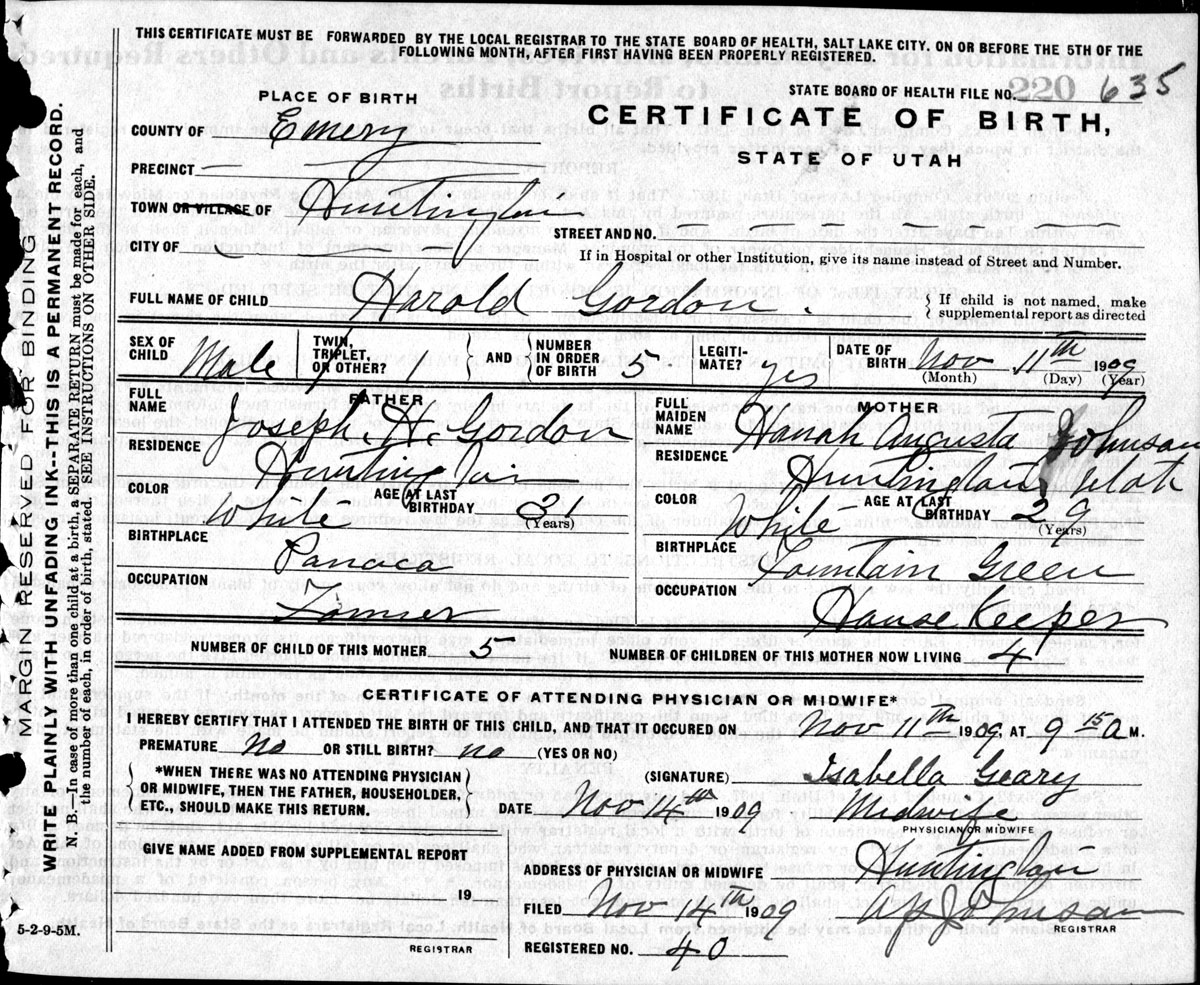 THIS CERTIFICATE MUST BE FORWARDED BY THE LOCAL REGISTRAR TO THE STATE BOARD OF HEALTH, SALT LAKE CITY. ON OR BEFORE THE 5TH OF THE
FOLLOWING MONTH, AFTER FIRST HAVING BEEN PROPERLY REGISTERED.
STATE BOARD OF HEALTH FILE NO. 220 635
PLACE OF BIRTH
CERTIFICATE OF BIRTH,
STATE OF UTAH
COUNTY OF Emery
PRECINCT
TOWN OR VILLAGE OF Huntington
STREET AND NO.
CITY OF
If in Hospital or other Institution, give its name instead of Street and Number.
FULL NAME OF CHILD Harold Gordon.
If child is not named, make
supplemental report as directed
SEX OF CHILD Male
TWIN, TRIPLET, OR OTHER? 1
AND
NUMBER IN ORDER OF BIRTH 5
LEGITI-MATE? yes
DATE OF BIRTH Nov 11th 1909
(Month) (Day) (Year)
FATHER
FULL NAME Joseph. H. Gordon
RESIDENCE Huntington
COLOR White
AGE AT LAST BIRTHDAY 31
(Years)
BIRTHPLACE Panaca
OCCUPATION
MOTHER
FULL MAIDEN NAME Hanah Augusta Johnson
RESIDENCE Huntington Utah
COLOR White
AGE AT LAST BIRTHDAY 29
(Years)
BIRTHPLACE Fountain Green
OCCUPATION House Keeper
NUMBER OF CHILD OF THIS MOTHER 5
NUMBER OF CHILDREN OF THIS MOTHER NOW LIVING 4
CERTIFICATE OF ATTENDING PHYSICIAN OR MIDWIFE*
I HEREBY CERTIFY THAT I ATTENDED THE BIRTH OF THIS CHILD, AND THAT IT OCCURED ON Nov 11th 1909, AT 9 15 A M.
PREMATURE No OR STILL BIRTH? no (YES OR NO)
*WHEN THERE WAS NO ATTENDING PHYSICIAN
OR MIDWIFE, THEN THE FATHER, HOUSEHOLDER,
ETC., SHOULD MAKE THIS RETURN.
(SIGNATURE) Isabella Geary
DATE Nov 14th 1909 Midwife
PHYSICIAN OR MIDWIFE
GIVE NAME ADDED FROM SUPPLEMENTAL REPORT
19
REGISTRAR
ADDRESS OF PHYSICIAN OR MIDWIFE Huntington
FILED Nov 14th 1909
REGISTRAR
REGISTERED NO. 40
5-2-9-5M.
MARGIN RESERVED FOR BINDING
WRITE PLAINLY WITH UNFADING INK--THIS IS A PERMANENT RECORD.
N. B.—In case of more than one child at a birth, a SEPARATE RETURN must be made for each, and
the number of each, in order of birth, stated. SEE INSTRUCTIONS ON OTHER SIDE.